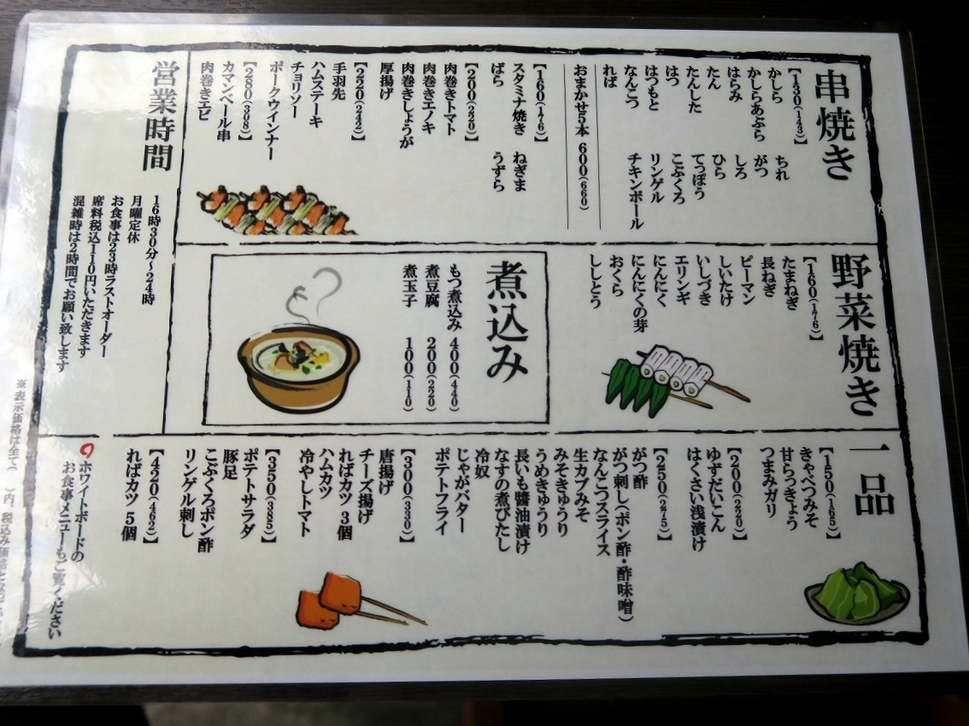 串焼き
【130(143)】
かしら ちれ
かしらあぶら がつ
はらみ しろ
たん ひら
たんした てっぽう
はつ こぶくろ
はつもと リンゲル
なんこつ チキンボール
れば
おまかせ5本 600(660)
【160(176)】
スタミナ焼き ねぎま
ばら うずら
【200(220)】
肉巻きトマト
肉巻きエノキ
肉巻きしょうが
厚揚げ
【220(242)】
手羽先
ハムステーキ
チョリソー
ポークウインナー
【280(308)】
カマンベール串
肉巻きエビ
野菜焼き
【160(176)】
たまねぎ
長ねぎ
ピーマン
しいたけ
いしづき
エリンギ
にんにく
にんにくの芽
おくら
ししとう
煮込み
もつ煮込み 400(440)
煮豆腐 200(220)
煮玉子 100(110)
一品
【150(165)】
きゃべつみそ
甘らっきょう
つまみガリ
【200(220)】
ゆずだいこん
はくさい浅漬け
【250(275)】
がつ酢
がつ刺し(ポン酢・酢味噌)
なんこつスライス
生カブみそ
みそきゅうり
うめきゅうり
長いも醬油漬け
なすの煮びたし
冷奴
じゃがバター
ポテトフライ
【300(330)】
唐揚げ
チーズ揚げ
ればカツ 3個
ハムカツ
冷やしトマト
【350(385)】
ポテトサラダ
豚足
こぶくろポン酢
リンゲル刺し
【420(462)】
ればカツ 5個
営業時間
16時30分〜24時
月曜定休
お食事は23時ラストオーダー
席料税込110円いただきます
混雑時は2時間でお願い致します
ホワイトボードの
お食事メニューもご覧ください
※表示価格は全て( )内 税込み価格と